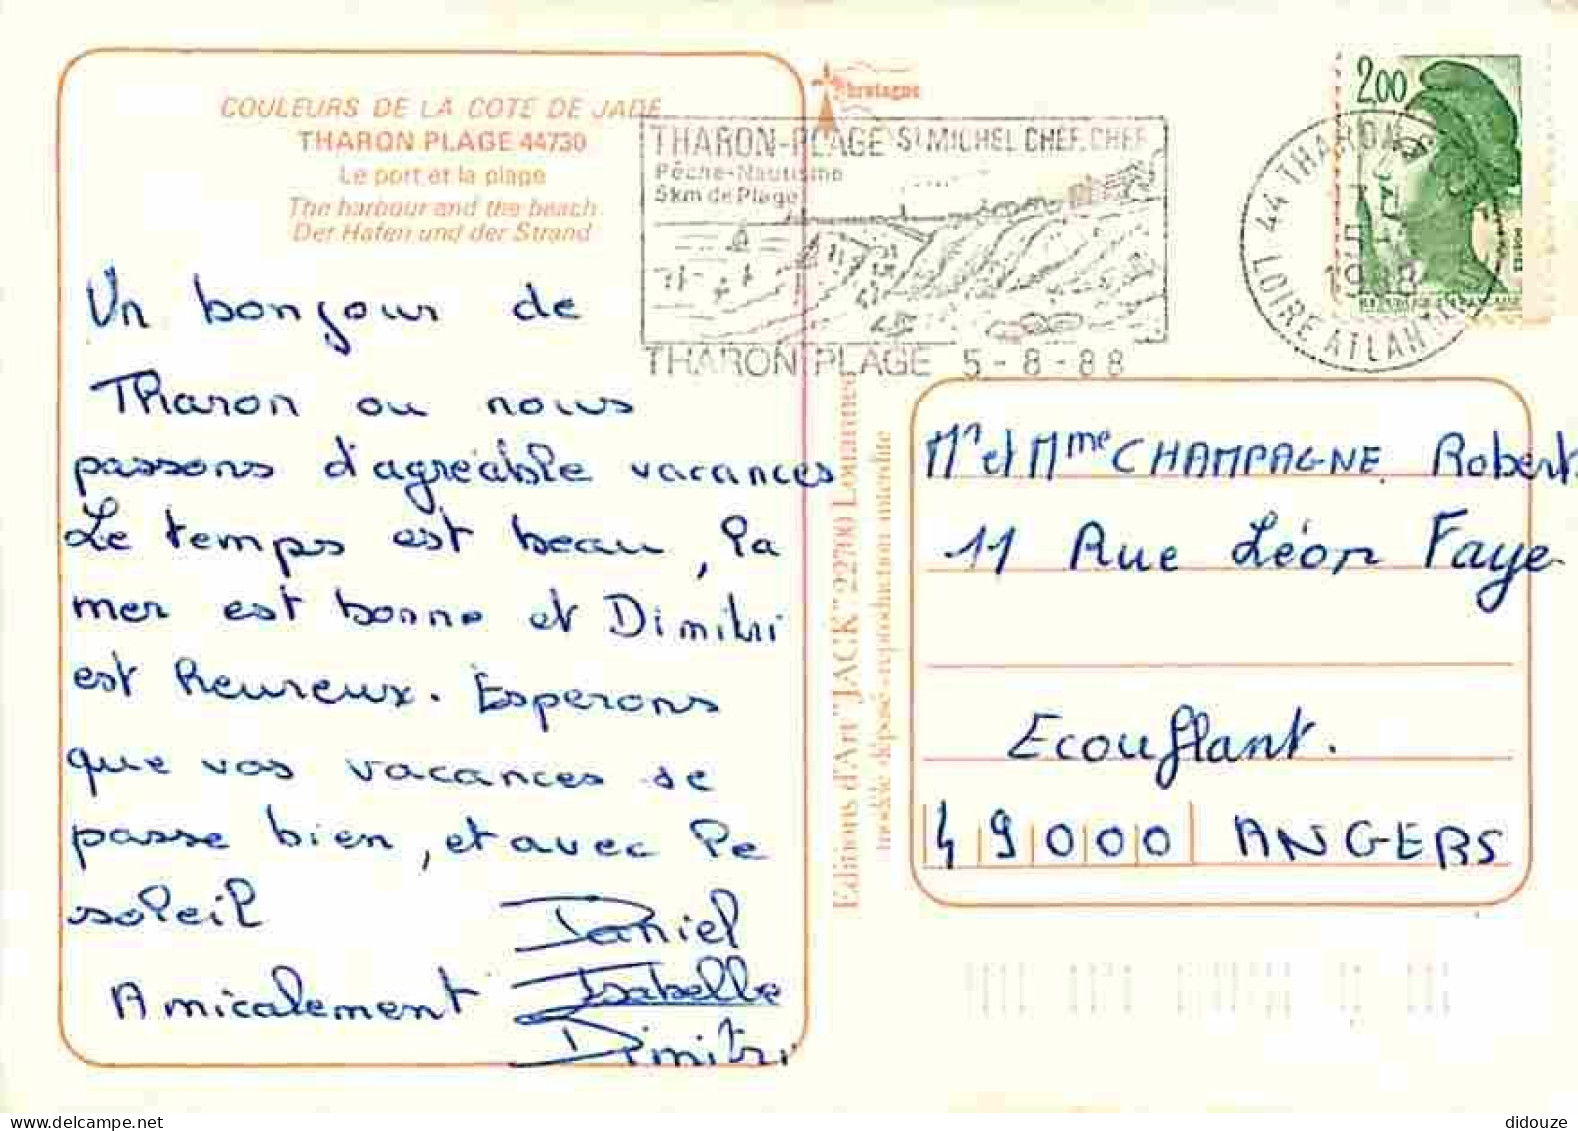 COULEURS DE LA COTE DE JADE
THARON PLAGE 44730
Le port et la plage
The harbour and the beach
Der Hafen und der Strand
Un bonjour de
Tharon ou nous
passons d'agréable vacances
Le temps est beau, la
mer est bonne et Dimitri
est heureux. Espérons
que vos vacances se
passe bien, et avec le
soleil
Amicalement
Daniel
Isabelle
Dimitri
bretagne
THARON-PLAGE St MICHEL CHEF. CHEF
Pêche-Nautisme
5km de Plage
THARON PLAGE 5-8-88
44 THARON
1988
LOIRE ATLANTIQUE
2,00
Editions d'Art "JACK" 22700 Louannec
modèle déposé - reproduction interdite
Mr et Mme CHAMPAGNE Robert
11 Rue Léon Faye
Ecouflant.
49000 ANGERS
didouze